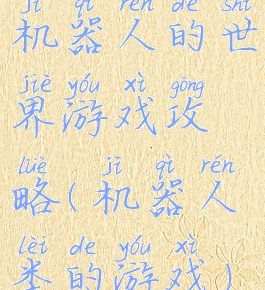 jī qì rén de shì
机器人的世
jiè yóu xì gōng
界游戏攻
lüè jī qì rén
略(机器人
lèi de yóu xì
类的游戏)